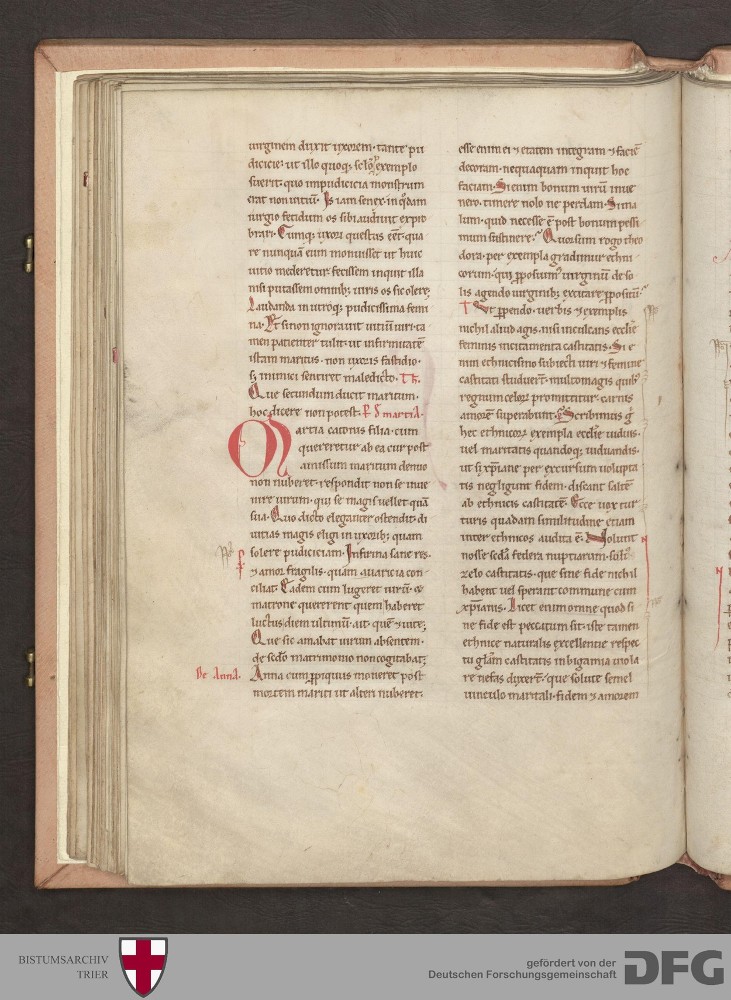 uirginem duxit uxorem. tante pu
dicicie: ut illo quoq; sclo exemplo
fuerit. quo impudicicia monstrum
erat non uitiũ. Is iam senex. in q̃dam
iurgio fetidum os sibi audiuit expro
brari. Cumq; uxori questus eēt. qua
re nunquã eum monuisset ut huic
uitio mederetur. fecissem inquit illa
nisi putassem omnib; uiris os sic olere;
Laudanda in utroq; pudicissima femi
na. Et si non ignorauit uitiũ uiri. ta
men patienter tulit. ut infirmitatẽ
istam maritus. non uxoris fastidio.
s; inimici sentiret maledicto.
Que secundum ducit maritum.
hoc dicere non potest. De martia.
Martia catonis filia. cum
quereretur ab ea cur post
amissum maritum denuo
non nuberet. respondit non se inue
nire uirum. qui se magis uellet quã
sua. Quo dicto eleganter ostendit. di
uitias magis eligi in uxorib; quam
solere pudiciciam. Infirma sane res.
& amor fragilis. quam auaricia con
ciliat. Eadem cum lugeret uirũ. &
matrone quererent quem haberet
luctus diem ultimũ. ait. quẽ & uite;
Que sic amabat uirum absentem.
de scdo matrimonio non cogitabat;
De anna. Anna cum ꝓpiquus moneret post
mortem mariti ut alteri nuberet.
esse enim ei & etatem integram & faciẽ
decoram. nequaquam inquit hoc
faciam. Si enim bonum uirũ inue
nero. timere nolo ne perdam. Si ma
lum. quid necesse ẽ post bonum pessi
mum sustinere. Quorsum rogo theo
dora. per exempla gradimur ethni
corum. qui ꝓpositum uirginũ de so
lis agendo uirginib; excitare ꝓposui.
Vt perpendo. uerbis & exemplis
nichil aliud agis. nisi inculcans ecclie
feminis incitamenta castitatis. Si e
nim ethnicismo subiecti uiri & femine
castitati studuert̃. multomagis quib;
regnum celorẽ promittitur. carnis
amorẽ superabunt. Scribimus g̊
hec ethnicorẽ exempla ecclie uiduis.
uel maritatis quandoq; uiduandis.
ut si xp̃iane per excursum uolupta
tis negligunt fidem. discant saltẽ
ab ethnicis castitatẽ. Ecce uox tur
turis quadam similitudine etiam
inter ethnicos audita ẽ. Nolunt
nosse scda federa nuptiarum. sol
zelo castitatis. que sine fide nichil
habent uel sperant commune cum
xp̃ianis. Licet enim omne quod si
ne fide est peccatum sit. iste tamen
ethnice naturalis excellentie respec
tu glam castitatis in bigamia uiola
re nefas dixert̃. que solute semel
uinculo maritali. fidem & amorem
BISTUMSARCHIV
TRIER
gefördert von der
Deutschen Forschungsgemeinschaft
DFG